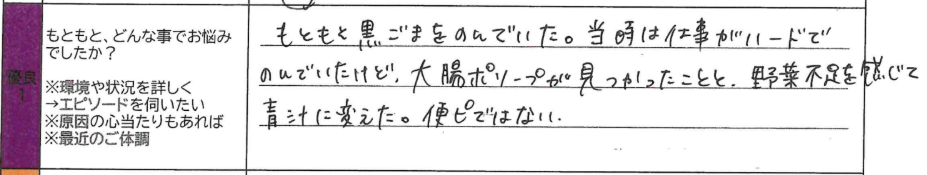 優良
1
もともと、どんな事でお悩み
でしたか？
※環境や状況を詳しく
→エピソードを伺いたい
※原因の心当たりもあれば
※最近のご体調
もともと黒ごまをのんでいた。当時は仕事がハードで
のんでいたけど、大腸ポリープが見つかったことと、野菜不足を感じて
青汁に変えた。便ピではない.